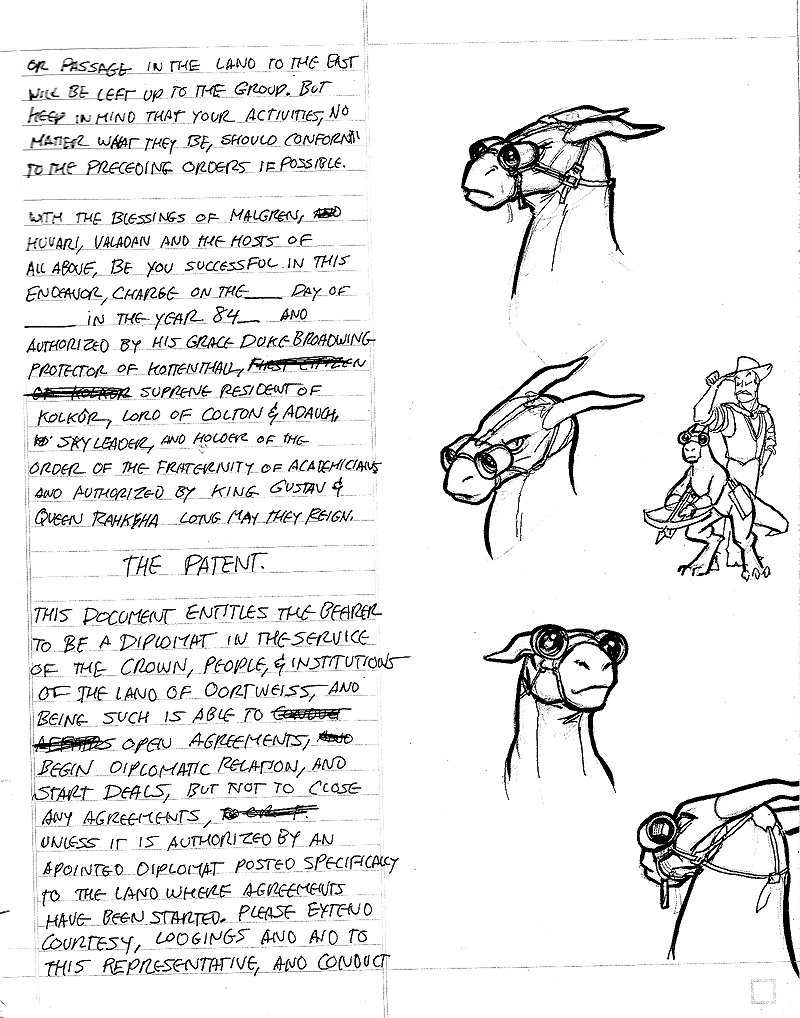 OR PASSAGE IN THE LAND TO THE EAST
WILL BE LEFT UP TO THE GROUP. BUT
KEEP IN MIND THAT YOUR ACTIVITIES, NO
MATTER WHAT THEY BE, SHOULD CONFORM
TO THE PRECEDING ORDERS IF POSSIBLE.
WITH THE BLESSINGS OF MALGREN, AND
HUVARI, VALADAN AND THE HOSTS OF
ALL ABOVE, BE YOU SUCCESSFUL IN THIS
ENDEAVOR, CHARGE ON THE____ DAY OF
_____ IN THE YEAR 84__ AND
AUTHORIZED BY HIS GRACE DUKE BROADWING
PROTECTOR OF KOTTENTHALL, FIRST CITIZEN
OF KOLKOR SUPREME RESIDENT OF
KOLKOR, LORD OF COLTON & ADAUCH,
SKY LEADER, AND HOLDER OF THE
ORDER OF THE FRATERNITY OF ACADEMICIANS
AND AUTHORIZED BY KING GUSTAV &
QUEEN RAHKEHA LONG MAY THEY REIGN.
THE PATENT.
THIS DOCUMENT ENTITLES THE BEARER
TO BE A DIPLOMAT IN THE SERVICE
OF THE CROWN, PEOPLE, & INSTITUTIONS
OF THE LAND OF OORTWEISS, AND
BEING SUCH IS ABLE TO CONDUCT
AFFAIRS OPEN AGREEMENTS, AND
BEGIN DIPLOMATIC RELATION, AND
START DEALS, BUT NOT TO CLOSE
ANY AGREEMENTS,
UNLESS IT IS AUTHORIZED BY AN
APOINTED DIPLOMAT POSTED SPECIFICALLY
TO THE LAND WHERE AGREEMENTS
HAVE BEEN STARTED. PLEASE EXTEND
COURTESY, LODGINGS AND AID TO
THIS REPRESENTATIVE, AND CONDUCT